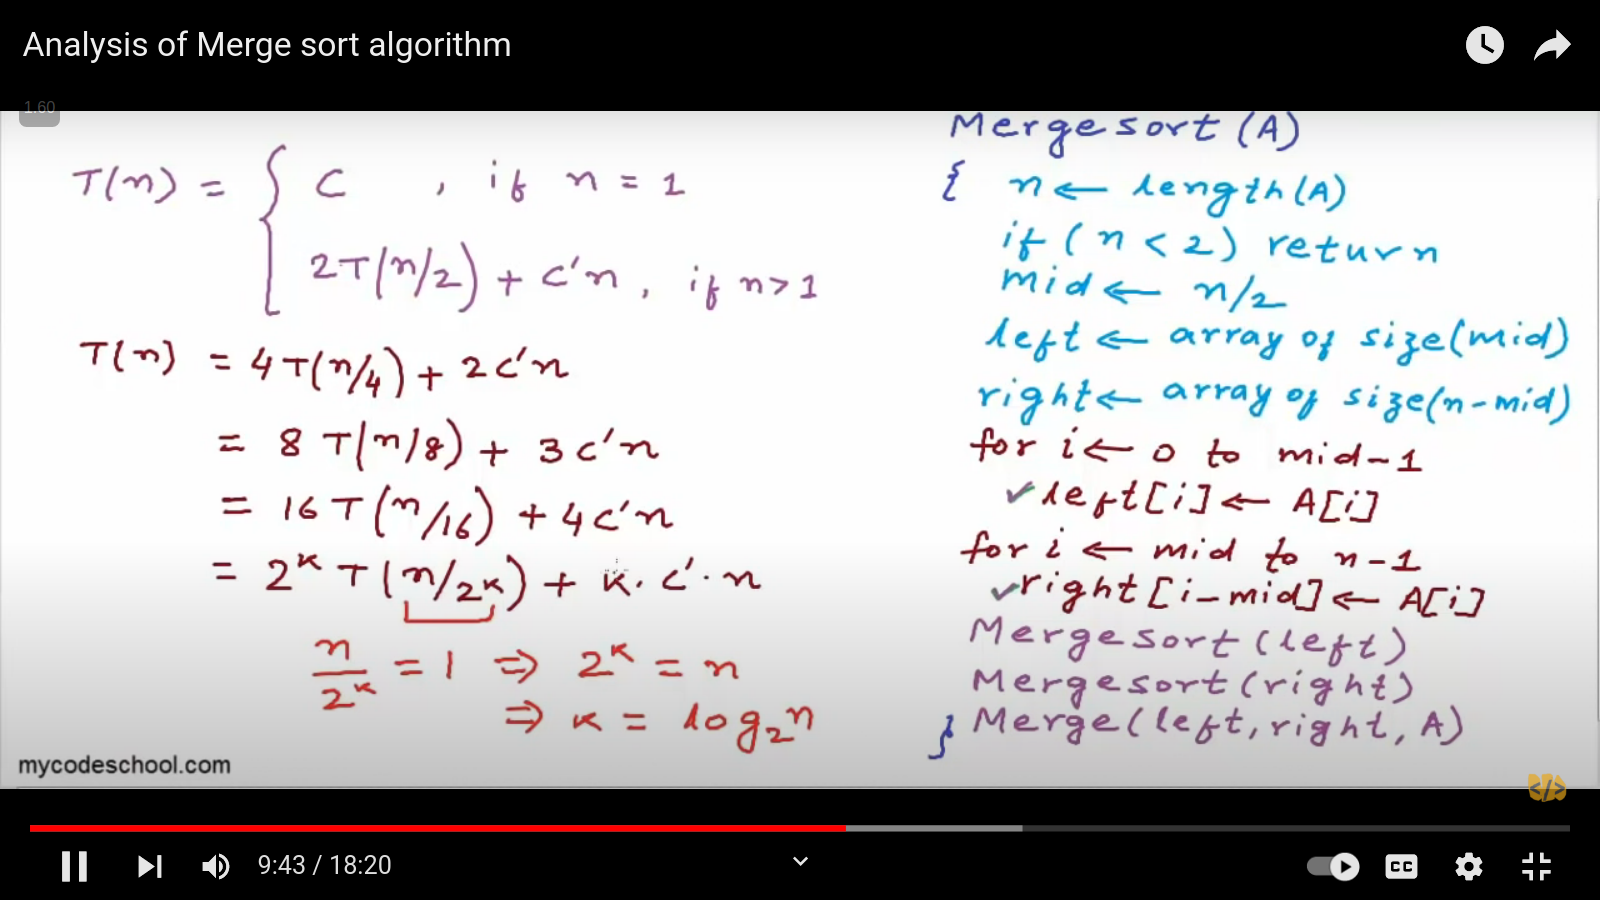 Analysis of Merge sort algorithm
1.60
T(n) = { C , if n = 1
2T(n/2) + C'n , if n > 1
T(n) = 4T(n/4) + 2C'n
= 8 T(n/8) + 3C'n
= 16 T(n/16) + 4C'n
= 2^k T(n/2^k) + k. C'. n
n/2^k = 1 ⇒ 2^k = n
⇒ k = log₂n
mycodeschool.com
Mergesort(A)
{ n ← length(A)
if (n < 2) return
mid ← n/2
left ← array of size(mid)
right ← array of size(n-mid)
for i ← 0 to mid-1
✓ left[i] ← A[i]
for i ← mid to n-1
✓ right[i-mid] ← A[i]
Mergesort(left)
Mergesort(right)
} Merge(left, right, A)
</>
9:43 / 18:20
CC